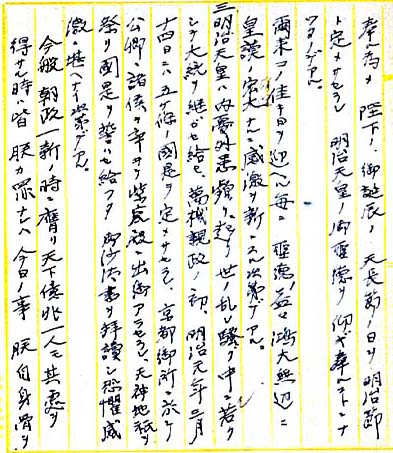 奉ル為メ 陛下ノ御誕辰ノ天長節ノ日ヲ明治節
ト定メサセラレ 明治天皇ノ御聖徳ヲ仰ギ奉ルコトニナ
ツタノデアル。
爾来コノ佳キ日ヲ迎ヘル毎ニ 聖徳ノ益々鴻大無辺ニ
皇謨ノ宏大ナルニ感激ヲ新ニスル次第デアル。
三明治天皇ハ内憂外患頻リニ起リ世ノ乱レ騒グ中ニ若ク
シテ大統ヲ継ガセ給ヒ萬機親政ノ初、明治元年三月
十四日ニハ五ケ條ノ國是ヲ定メサセラレ、京都御所ニ於テ
公卿、諸侯ヲ率ヰ紫宸殿ニ出御アラセラレ、天神地祇ヲ
祭リ國是ヲ誓ハセ給フタ 御沙汰書ヲ拝讀シ恐懼感
激ニ堪ヘナイ次第デアル。
今般朝政一新ノ時ニ膺リ天下億兆一人モ其處ヲ
得サル時ハ皆 朕カ罪ナレハ今日ノ事 朕自身骨ヲ